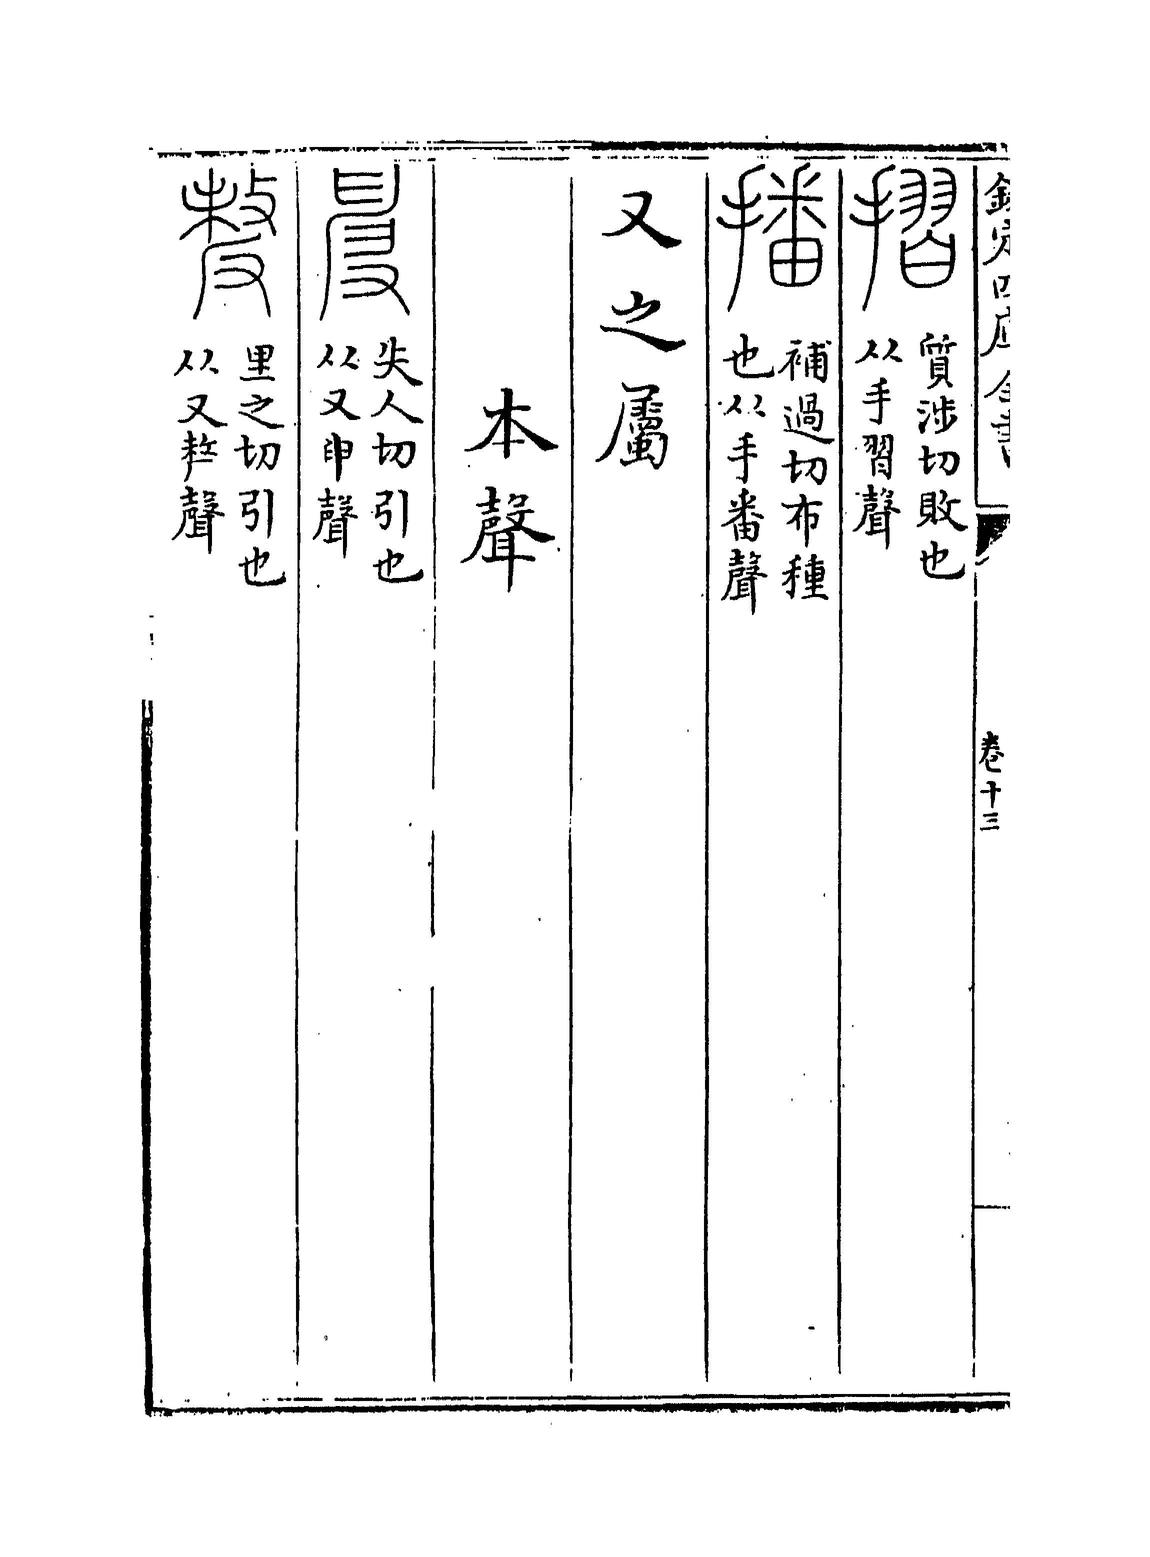 欽定四庫全書
卷十三
摺 質涉切敗也
从手習聲
播 補過切布種
也从手番聲
又之屬
本聲
𠭙 失人切引也
从又申聲
𠭰 里之切引也
从又𠩺聲